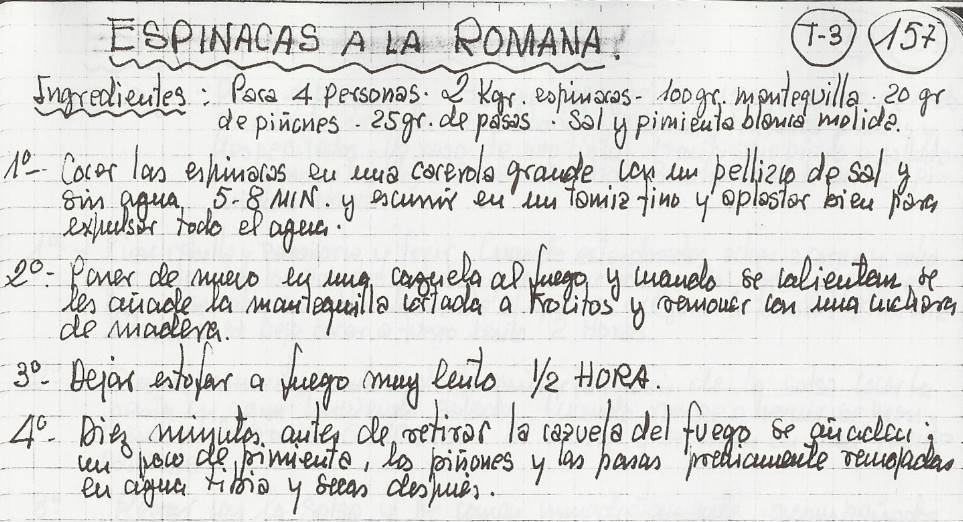 ESPINACAS A LA ROMANA! T-3 157
Ingredientes: Para 4 personas. 2 Kgr. espinacas- 100 gr. mantequilla. 20 gr
de piñones. 25 gr. de pasas. Sal y pimienta blanca molida.
1º- Cocer las espinacas en una cacerola grande con un pellizco de sal y
sin agua 5-8 MIN. y escurrir en un tamiz fino y aplastar bien para
expulsar todo el agua.
2º- Poner de nuevo en una cazuela al fuego y cuando se calientan se
les añade la mantequilla cortada a trocitos y remover con una cuchara
de madera.
3º- Dejar estofar a fuego muy lento 1/2 HORA.
4º- Diez minutos antes de retirar la cazuela del fuego se añaden:
un poco de pimienta, los piñones y las pasas previamente remojadas
en agua tibia y secas después.